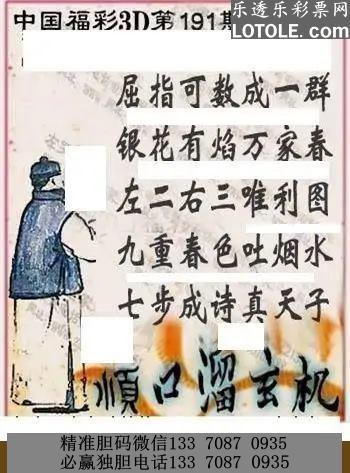 中国福彩3D第191期
乐透乐彩票网
LOTOLE.COM
屈指可数成一群
银花有焰万家春
左二右三唯利图
九重春色吐烟水
七步成诗真天子
順口溜玄机
精准胆码微信133 7087 0935
必赢独胆电话133 7087 0935